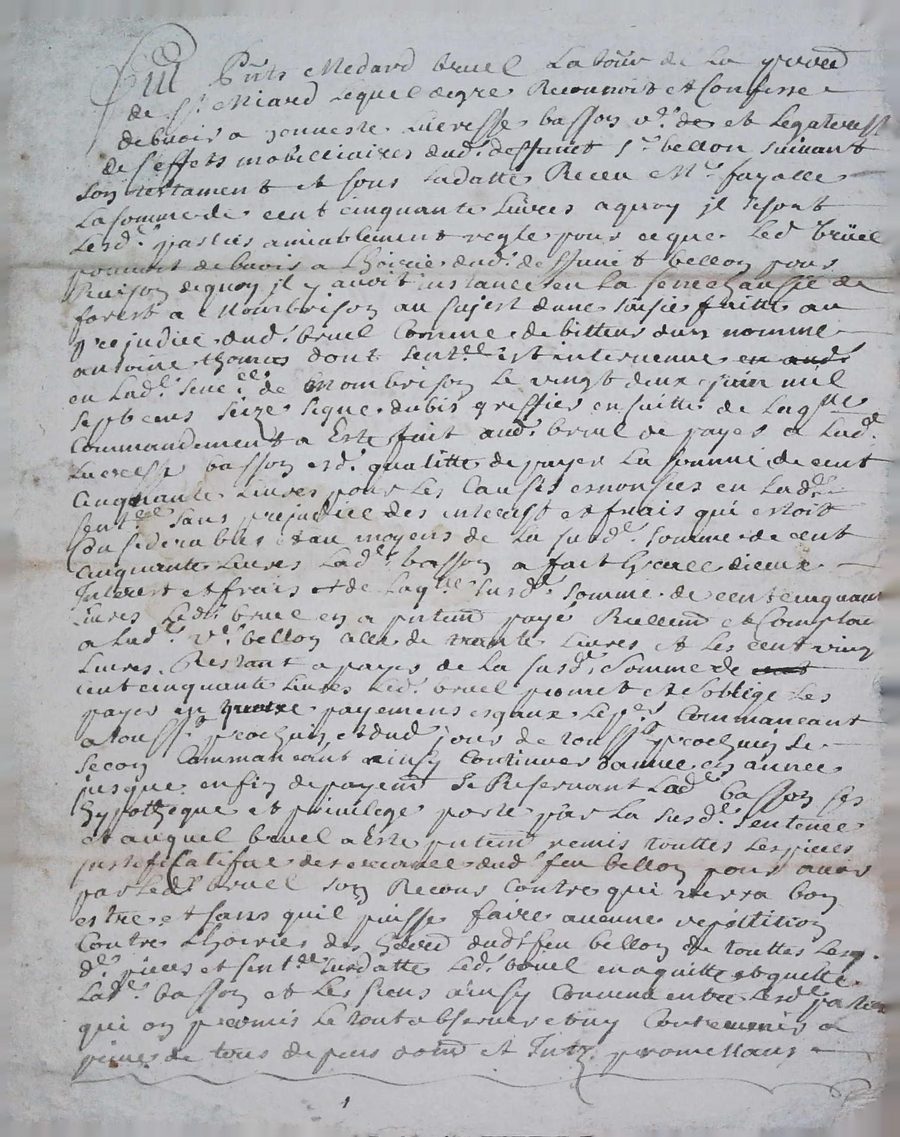 Fut Pnts Medard bruel La tour de La parroe
de St. Miard Lequel degre Reconnoit et Confesse
debvoir a honneste Lucresse basson ve. de et Legateresse
des effets mobilliaires dud. deffunct sr. bellon suivant
son testament et sous Ladatte Receu Me. fayolle
La somme de cent cinquante Livres a quoy il se sont
Lesd. parties amiablement regle pour ce que Led. brüel
pouvoit debvoir a Lhoirie dud. deffunct bellon pour
Raison dequoy il y avoit instance en La senechaussee de
forest a Montbrison au sujet dune saisie faitte au
prejudice dud. bruel Comme debitteur dun nomme
antoine thomas dont sentce. est intervenue
en Lad. senecee. de Montbrison Le vingt deux juin mil
sept cens seize signe dubis greffier en suitte de Laqlle
Commandement a Este fait aud. bruel de payer a Lad.
Lucresse basson esd. qualitte de payer La somme de cent
Cinquante Livres pour Les Causes ennonsees en Lad.
sentce sans prejudice des interest et frais qui estoit
Considerables et au moyens de La susd. somme de cent
cinquante Livres Lad. basson a fait grace dieux
Interest et frais et de Laqlle susd. somme de cent cinquante
Livres Ledt. bruel en a pntemt paye Reellemt et Comptant
a Lad. ve. bellon celle de trante Livres et Les cent vingt
Livres Restant a payer de La susd. somme de cent
cent cinquante Livres Led. bruel promet et soblige Les
payer en quatre payemens esgaux Le per. Commancant
a toussts prochain et dud. jour de toussts prochain Le
secon Commancant ainsy Continuer dannee en annee
jusque en fin de payemt se Reservant Lad. basson ses
hypotheque et privilege porte par La susd. sentence
et auquel bruel a Este pntemt remis touttes Les pieces
justificative des creance dud. feu bellon pour avoir
par Ledt bruel son Recours Contre qui verra bon
estre et sans quil puisse faire aucune repettition
Contre Lhoirie des hered dudt feu bellon de touttes Lesq.
d. pieces et sentce susdatte Led. bruel en aquitte et quitte
Lad. basson et Les siens ainsy Convenu entre Lesd. parties
qui on promis Le tout observer et au Contenu a
peine de tous depens dom et Intz. promettans